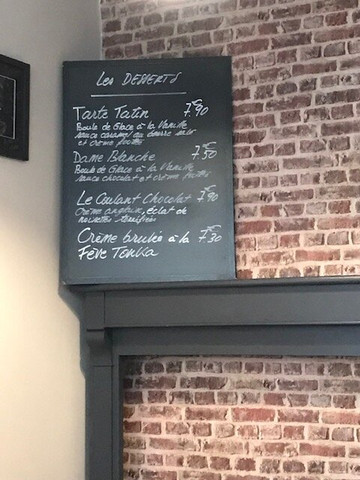 Les DESSERTS
Tarte Tatin 7€90
Boule de Glace à la Vanille
sauce caramel au beurre salé
et crème fouettée
Dame Blanche 7€50
Boule de Glace à la Vanille
sauce chocolat et crème fouettée
Le Coulant Chocolat 7€90
crème anglaise, éclat de
noisettes
Crème brulée à la 7€30
Fève Tonka